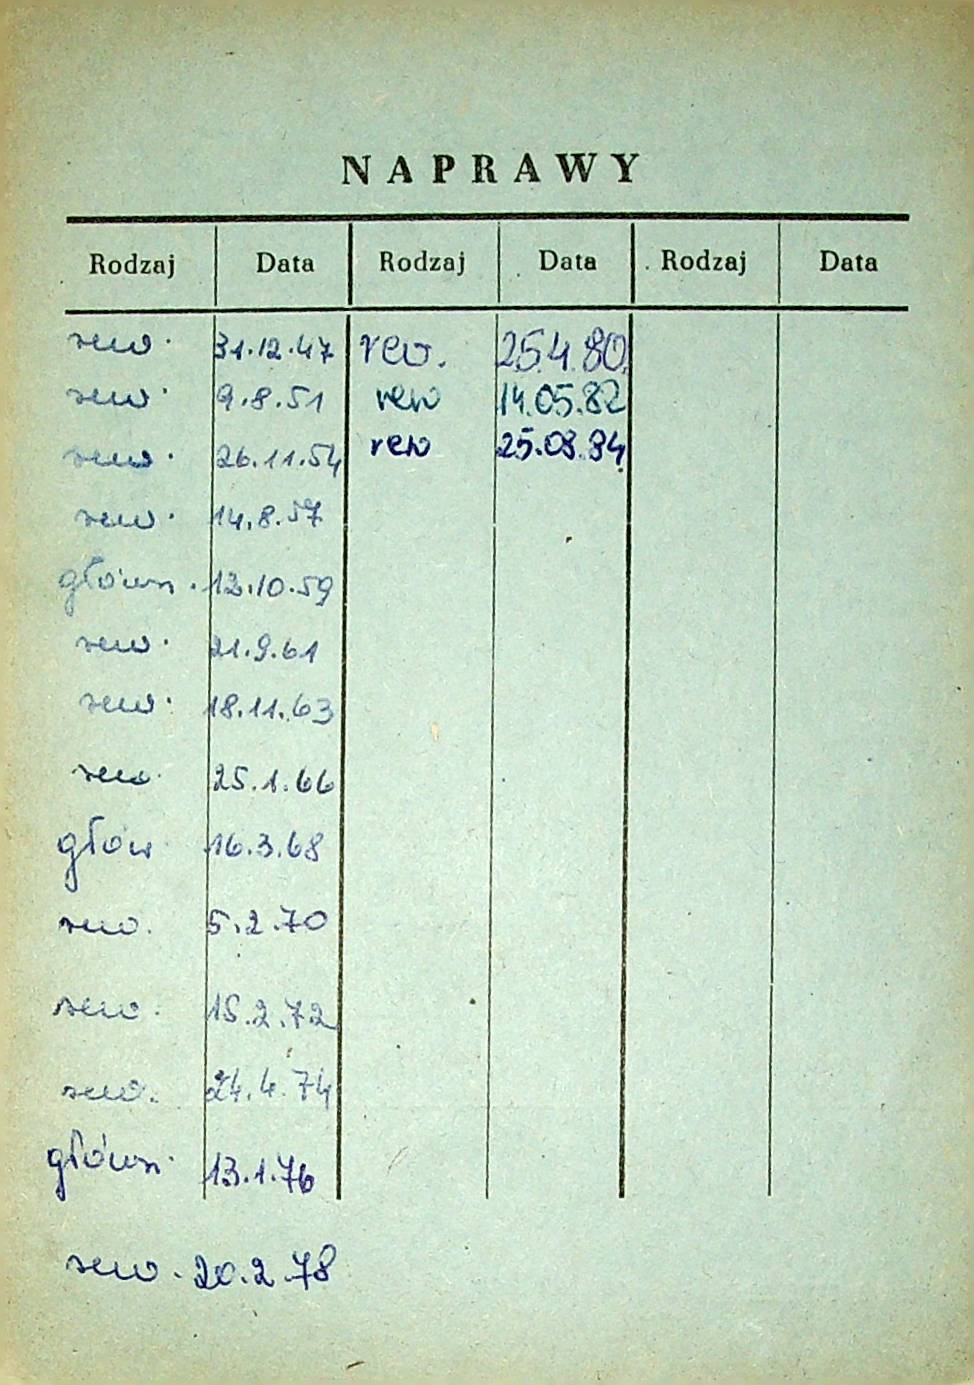 NAPRAWY
Rodzaj Data Rodzaj Data Rodzaj Data
rew. 31.12.47 rew. 25.4.80.
rew. 9.8.51 rew 14.05.82
rew. 26.11.54 rew 25.08.84
rew. 14.8.57
główn. 12.10.59
rew. 21.9.61
rew. 18.11.63
rew. 25.1.66
głów 16.3.68
rew. 5.2.70
rew. 15.2.72
rew. 24.4.74
główn. 13.1.76
rew. 20.2.78